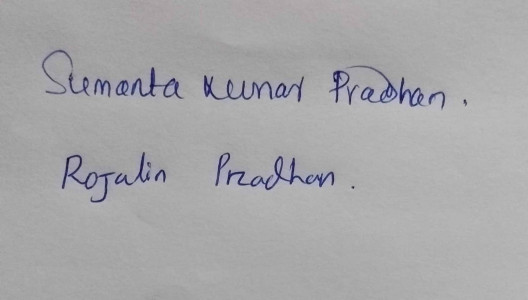 Sumanta Kumar Pradhan.
Rojalin Pradhan.